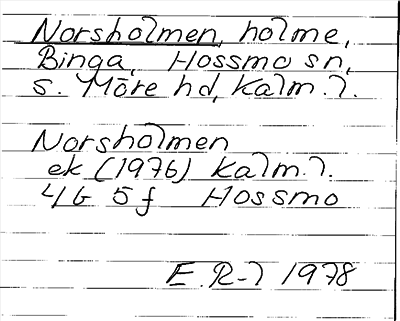 Norsholmen, holme,
Binga, Hossmo sn,
S. Möre hd, Kalm. l.
Norsholmen
ek (1976) Kalm. l.
4G 5f Hossmo
E. R-l 1978